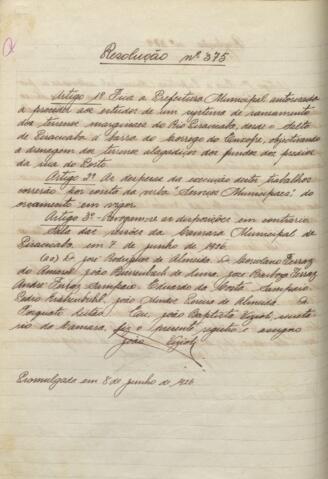 Resolução nº 375
Artigo 1º Fica a Prefeitura Municipal autorisada
a proceder aos estudos de um systema de saneamento
dos terrenos marginaes do Rio Piracicaba, desde o Salto
de Piracicaba á barra do corrego do Enxofre, objectivando
a drenagem dos terrenos alagadiços dos fundos dos predios
da rua do Porto
Artigo 2º As despesas da execução deste trabalhos
correrão por conta da verba "Serviços Municipaes" do
orçamento em vigor.
Artigo 3º Revogam-se as disposições em contrario
Sala das sessões da Camara Municipal de
Piracicaba, em 7 de junho de 1926.
(aa) Dr José Rodrigues de Almeida, Dr Coriolano Ferraz
do Amaral, João Lima, José Barbosa Ferraz
André Ferraz Sampaio, Eduardo da Costa Sampaio
Pedro Krahenbuhl, João Mendes de Almeida, Dr
Leitão Eu, João Baptista Vizioli, secreta-
rio da Camara, fiz o presente registro e assigno
João Vizioli
Promulgada em 8 de junho de 1926